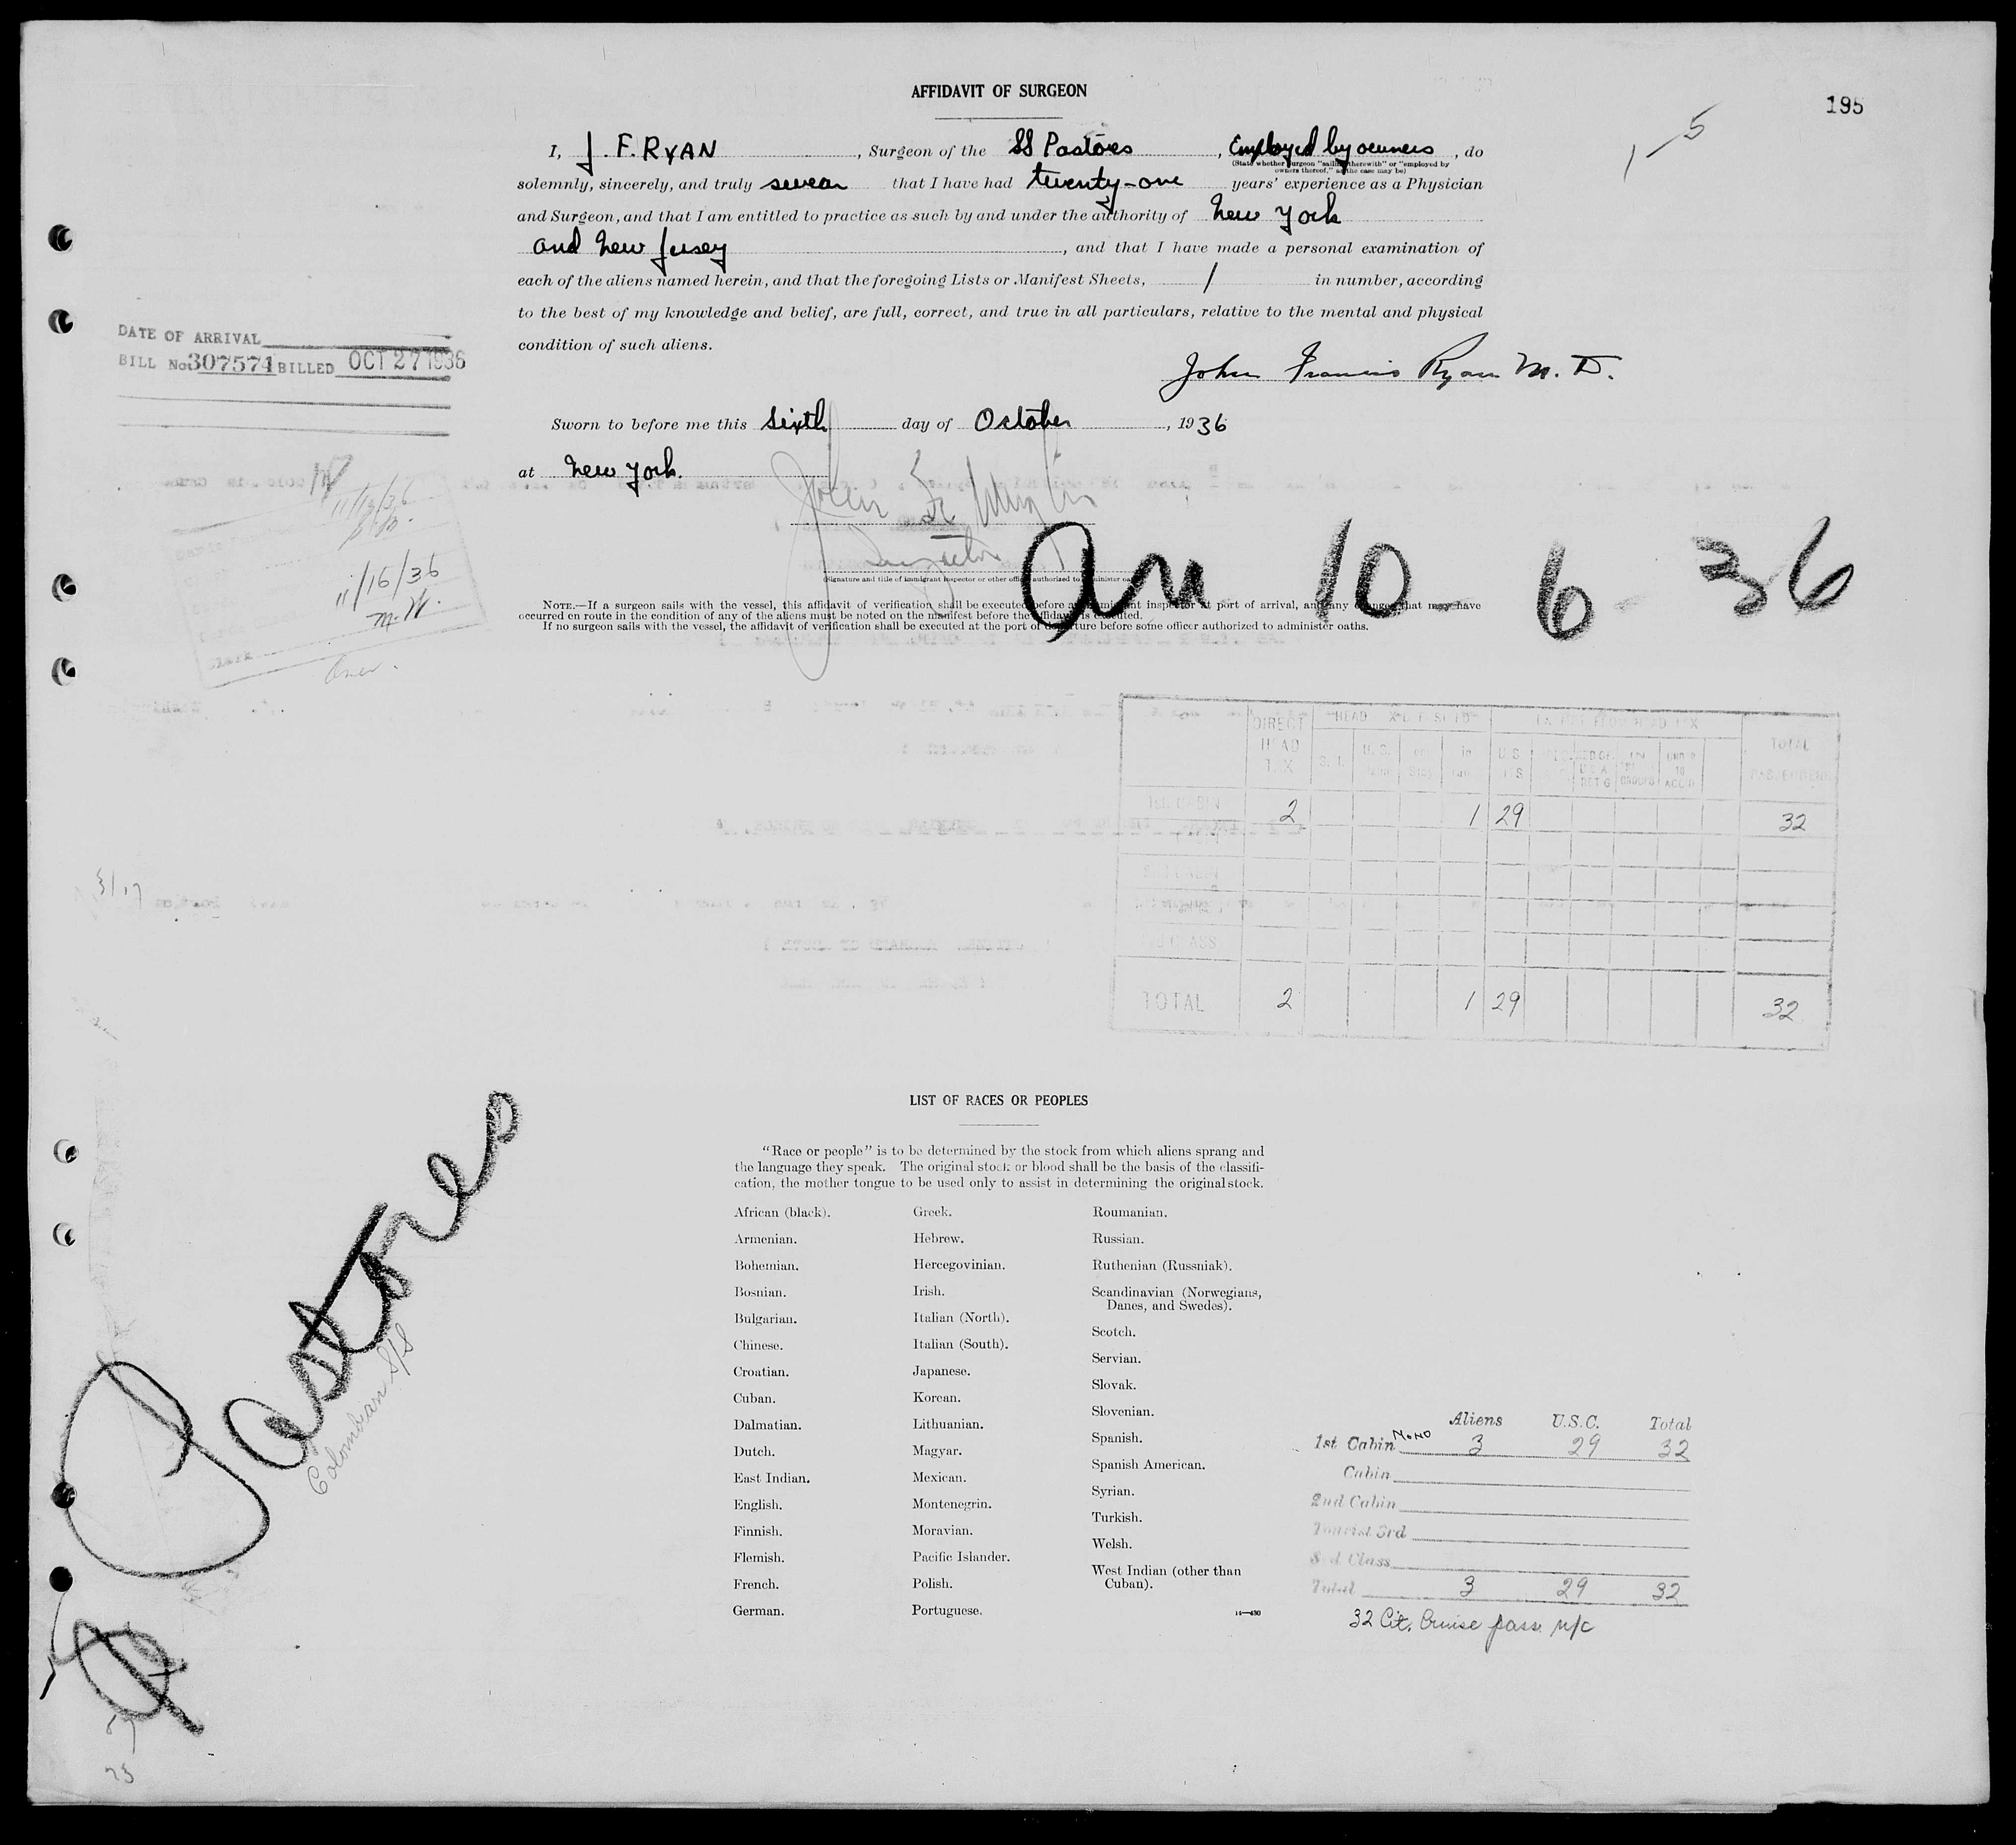 AFFIDAVIT OF SURGEON
195
1-5
I, J. F. RYAN, Surgeon of the SS Pastores, Employed by owners, do
(State whether surgeon "sailing therewith" or "employed by
owners thereof," as the case may be)
solemnly, sincerely, and truly swear that I have had twenty-one years' experience as a Physician
and Surgeon, and that I am entitled to practice as such by and under the authority of New York
and New Jersey, and that I have made a personal examination of
each of the aliens named herein, and that the foregoing Lists or Manifest Sheets, 1 in number, according
to the best of my knowledge and belief, are full, correct, and true in all particulars, relative to the mental and physical
condition of such aliens.
John Francis Ryan M. D.
DATE OF ARRIVAL
BILL No 307574 BILLED OCT 27 1936
Sworn to before me this Sixth day of October, 1936
at New York.
11/13/36
11/16/36
M.W.
(Signature and title of immigrant inspector or other officer authorized to administer oaths)
Arr 10-6-36
NOTE.—If a surgeon sails with the vessel, this affidavit of verification shall be executed before an immigrant inspector at port of arrival, and any changes that may have
occurred en route in the condition of any of the aliens must be noted on the manifest before the affidavit is executed.
If no surgeon sails with the vessel, the affidavit of verification shall be executed at the port of departure before some officer authorized to administer oaths.
DIRECT HEAD TAX
U.S.
TOTAL
1st CABIN 2 1 29 32
TOTAL 2 1 29 32
Pastores
Colombian S/S
LIST OF RACES OR PEOPLES
"Race or people" is to be determined by the stock from which aliens sprang and
the language they speak. The original stock or blood shall be the basis of the classifi-
cation, the mother tongue to be used only to assist in determining the original stock.
African (black).
Armenian.
Bohemian.
Bosnian.
Bulgarian.
Chinese.
Croatian.
Cuban.
Dalmatian.
Dutch.
East Indian.
English.
Finnish.
Flemish.
French.
German.
Greek.
Hebrew.
Hercegovinian.
Irish.
Italian (North).
Italian (South).
Japanese.
Korean.
Lithuanian.
Magyar.
Mexican.
Montenegrin.
Moravian.
Pacific Islander.
Polish.
Portuguese.
Roumanian.
Russian.
Ruthenian (Russniak).
Scandinavian (Norwegians,
Danes, and Swedes).
Scotch.
Servian.
Slovak.
Slovenian.
Spanish.
Spanish American.
Syrian.
Turkish.
Welsh.
West Indian (other than
Cuban).
14—430
Aliens U.S.C. Total
1st Cabin 3 29 32
Cabin
2nd Cabin
Tourist 3rd
3rd Class
Total 3 29 32
32 Cit. Cruise pass. n/c